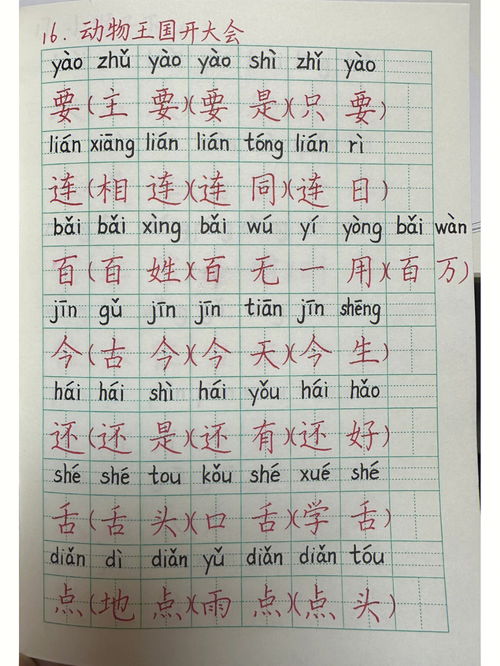 16. 动物王国开大会
yào zhǔ yào yào shì zhǐ yào
要(主要)(要是)(只要)
lián xiāng lián lián tóng lián rì
连(相连)(连同)(连日)
bǎi bǎi xìng bǎi wú yí yòng bǎi wàn
百(百姓)(百无一用)(百万)
jīn gǔ jīn jīn tiān jīn shēng
今(古今)(今天)(今生)
hái hái shì hái yǒu hái hǎo
还(还是)(还有)(还好)
shé shé tou kǒu shé xué shé
舌(舌头)(口舌)(学舌)
diǎn dì diǎn yǔ diǎn diǎn tóu
点(地点)(雨点)(点头)